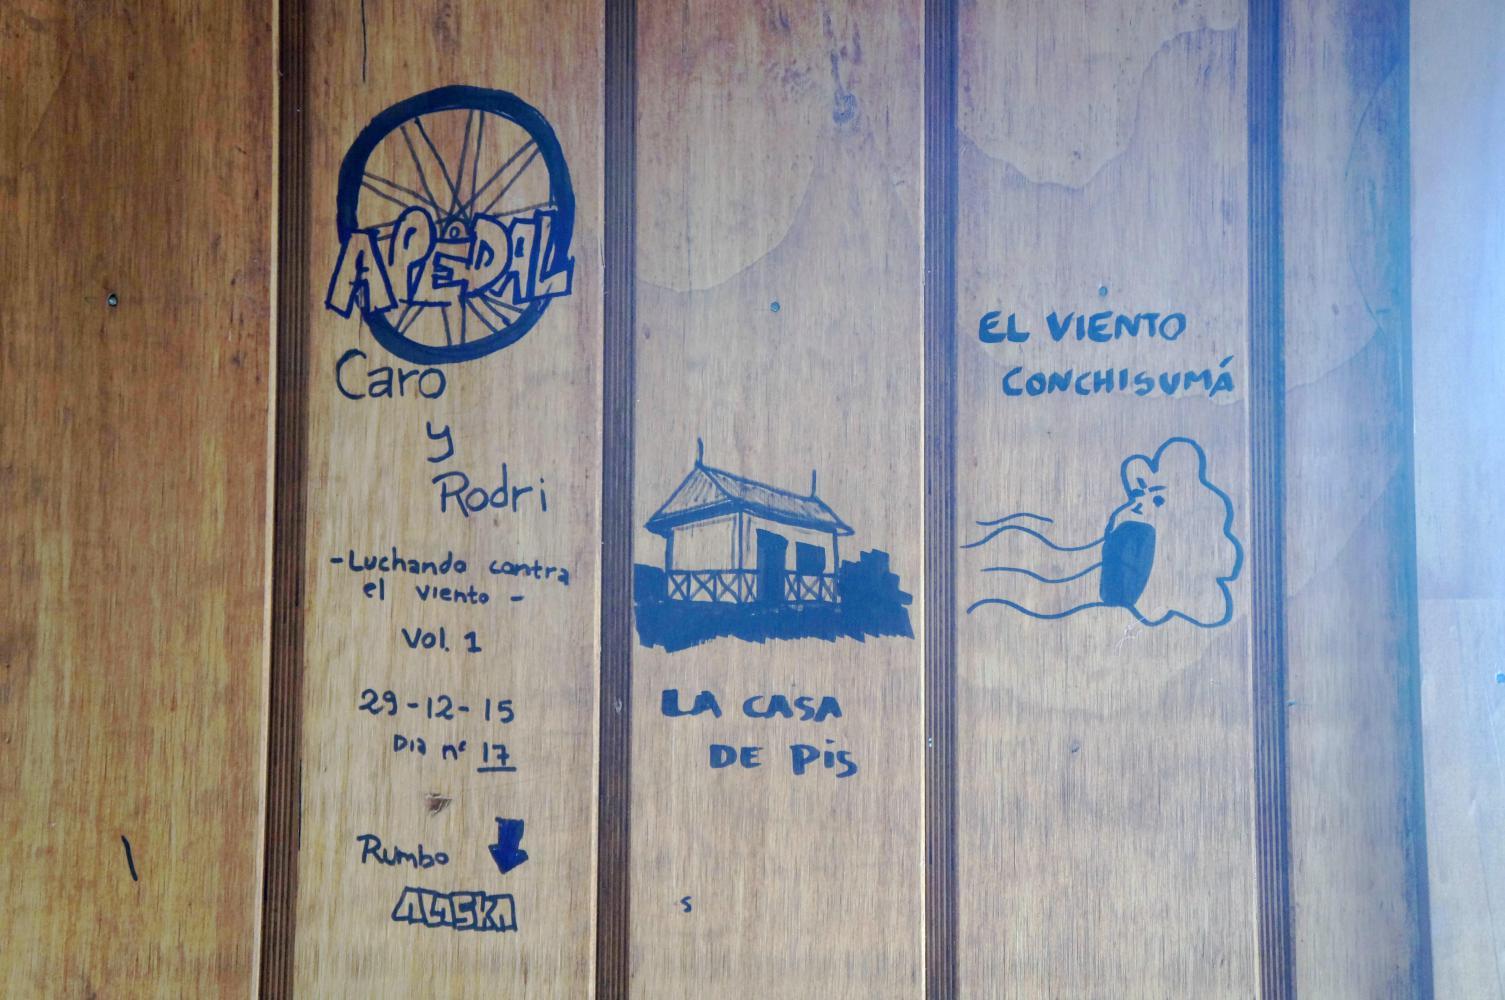 APEDAL
Caro
y
Rodri
-Luchando contra
el viento -
Vol. 1
29-12-15
Dia nº 17
Rumbo
ALASKA
LA CASA
DE PIS
S
EL VIENTO
CONCHISUMÁ